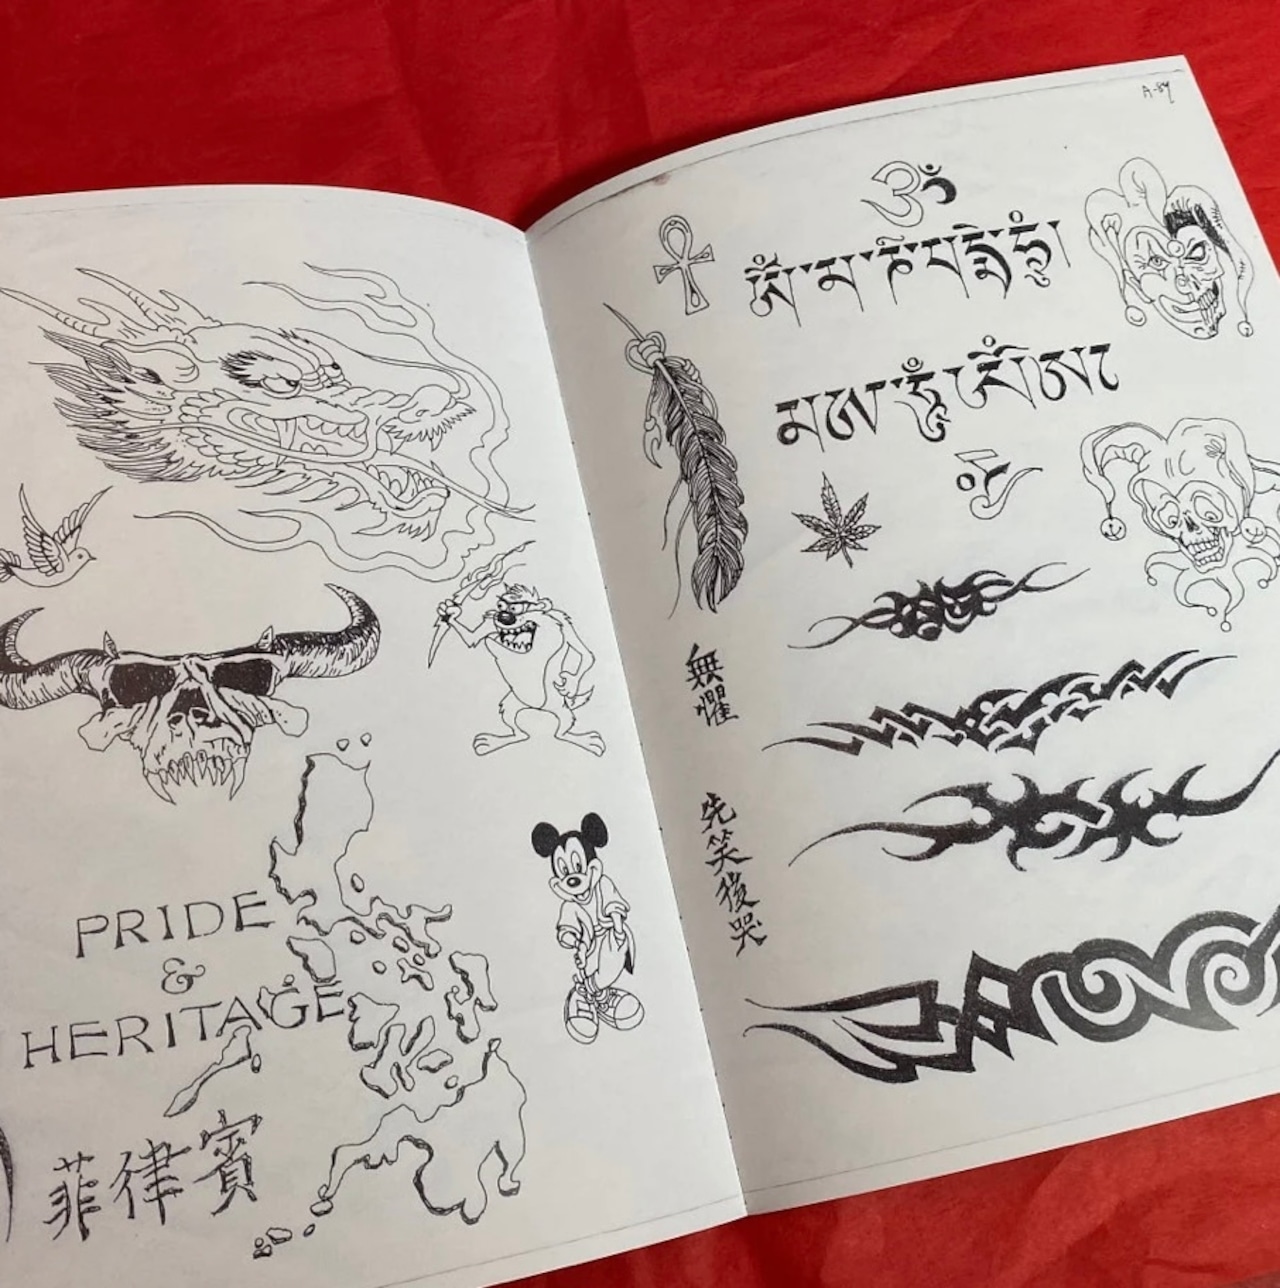 PRIDE
&
HERITAGE
菲律賓
A-84
ॐ
ཨོཾ་མ་ཎི་པདྨེ་ཧཱུྃ།
無懼
先笑後哭